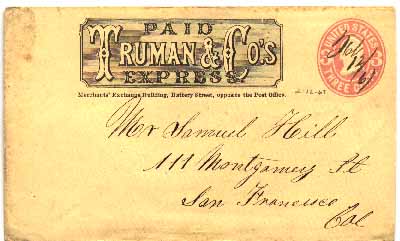 PAID
TRUMAN & CO'S
EXPRESS
Merchants' Exchange Building, Battery Street, opposite the Post Office.
UNITED STATES
THREE
3
Mr Samuel Hill
111 Montgomery St
San Francisco
Cal